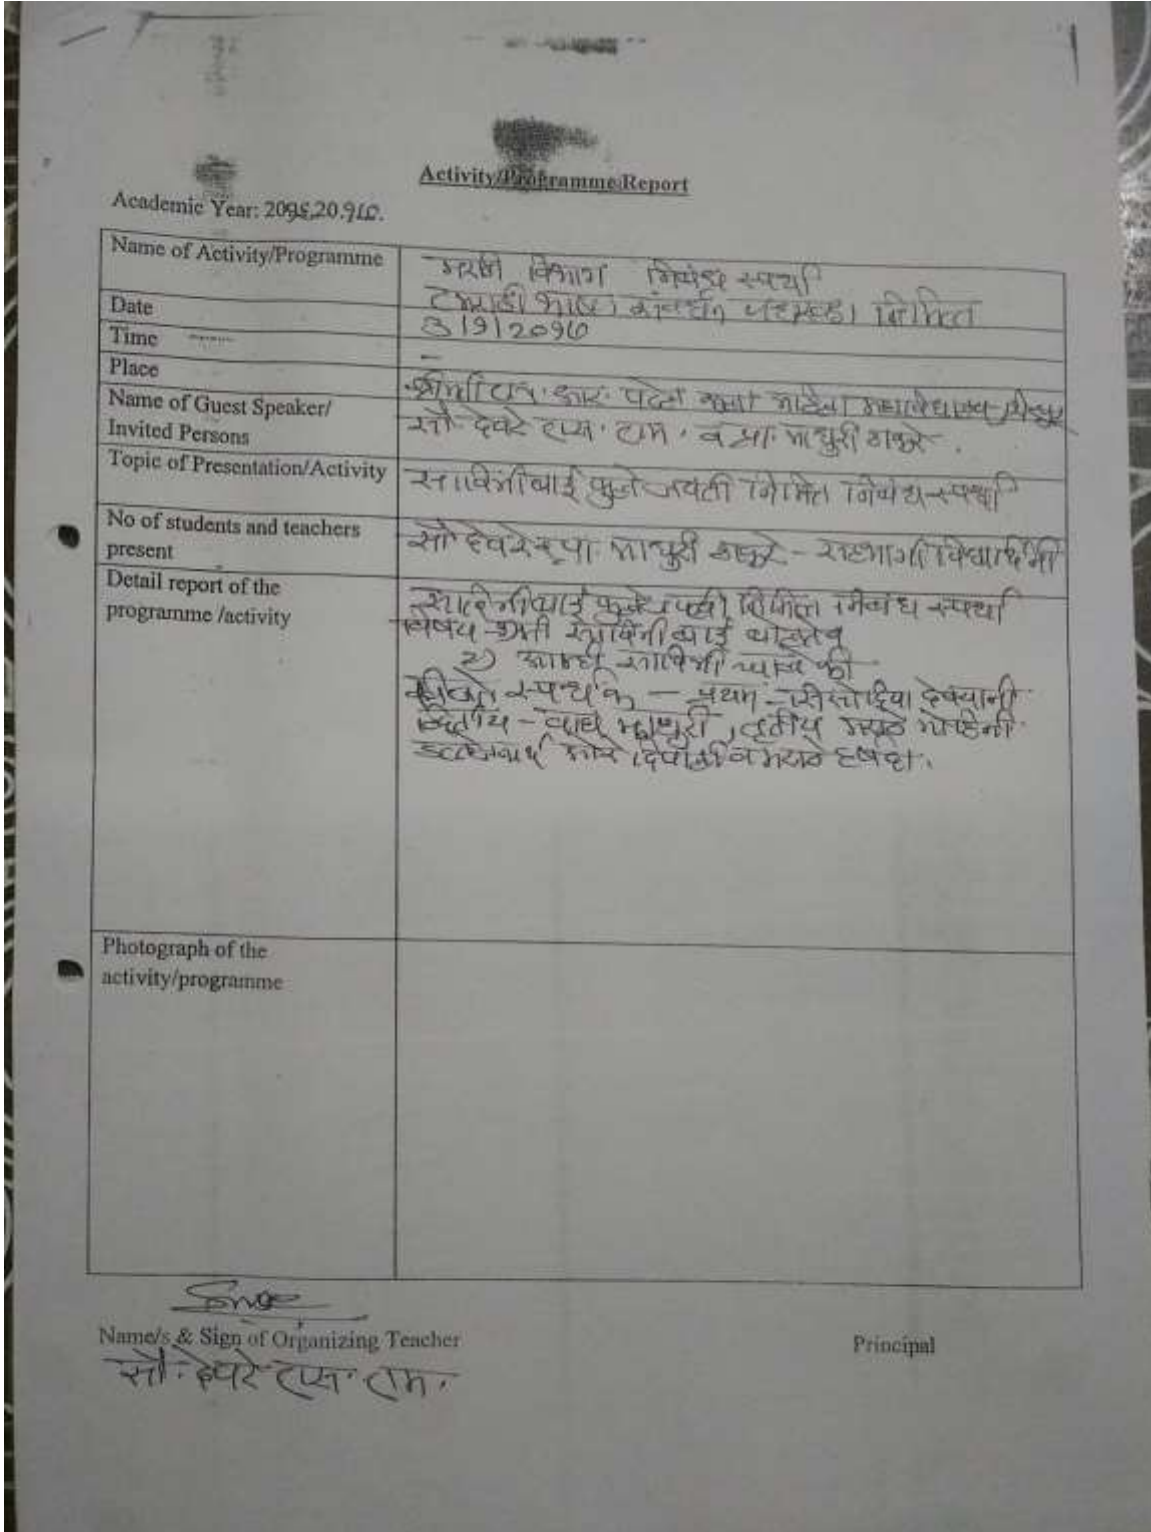 Activity/Programme Report
Academic Year: 20१६.20.१७.
Name of Activity/Programme
मराठी विभाग निबंध स्पर्धा
मराठी भाषा संवर्धन पंधरवडा निमित्त
Date
३।१।२०१७
Time
-
Place
पटेल कला महिला महाविद्यालय
Name of Guest Speaker/
Invited Persons
सौ. देवरे एस. एम. व प्रा. माधुरी ठाकरे.
Topic of Presentation/Activity
सावित्रीबाई फुले जयंती निमित्त निबंध स्पर्धा
No of students and teachers
present
सौ देवरे व प्रा. माधुरी ठाकरे - सहभागी विद्यार्थिनी
Detail report of the
programme /activity
सावित्रीबाई फुले निमित्त निबंध स्पर्धा
विषय - सावित्रीबाई बोलतेय
२) आम्ही सावित्रीच्या लेकी
स्पर्धक - प्रथम - सिसोदिया देवयानी
द्वितीय - वाघ माधुरी, तृतीय मराठे मोहिनी
उत्तेजनार्थ मोरे दिपाली व मराठे हर्षदा.
Photograph of the
activity/programme
Name/s & Sign of Organizing Teacher
Principal
सौ. देवरे एस. एम.